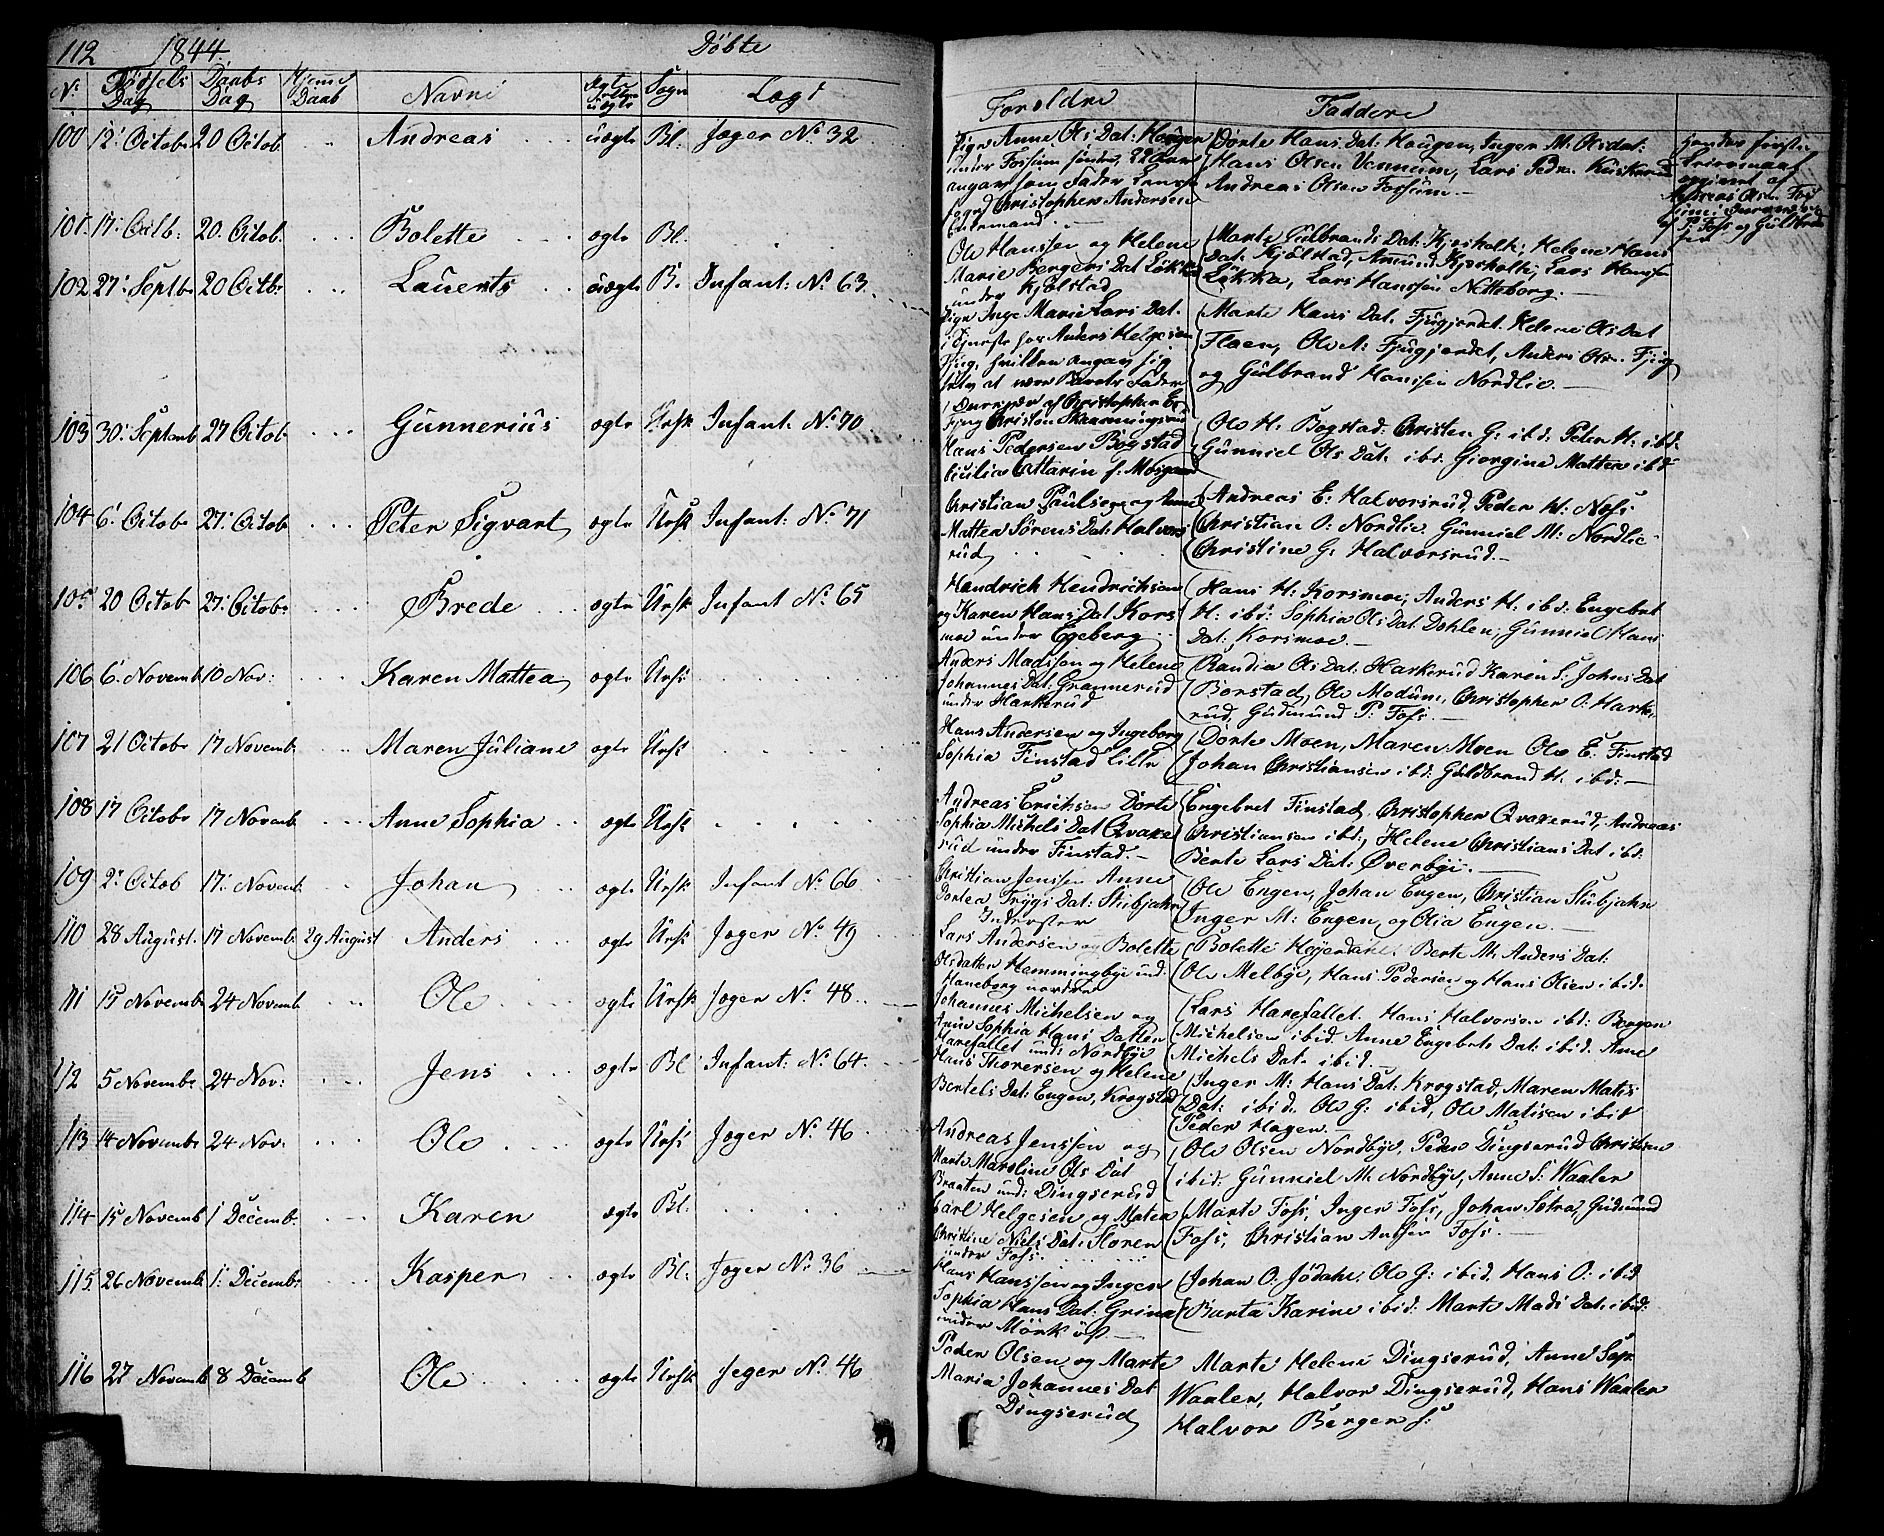 112 1844. Döbte
No. Födsels Dag Daabs Dag Hjemme Daab Navne Ægte eller uægte Sogn Lægd
Foreldre Faddere
100 12' Octobr 20 Octob Andreas uægte Bl. Jæger No. 32
Pige Anne Ols Dat: Haugen
under Fossum søndre, 22 Aar
angav som Fader Lens
Christopher Andersen
Dorte Hans Dat: Haugen, Inger M. Olsdat:
Hans Olsen Vennum, Lars Peders. Kuskerud
Andreas Olsen Fossum. —
101. 17: Octb: 20. Octob. Bolette ægte Bl.
Ole Hanssen og Helene
Marie Bergers Dat Løkka
under Kjølstad
Marte Gulbrands Dat: Kjosholt; Helene Hans
Dat: Kjølstad, Amund Kjosholt; Lars Hanssen
Løkka, Lars Hanssen Netteborg. —
102 27: Septbr 20 Octb: Lauerts uægte B. Infant: No. 63
Pige Inge Marie Lars Dat.
i Tjeneste hos Anders Helgesen
Fjug, hvilken angav sig
selv at være Barnets Fader
Marte Hans Dat. Fjugjordet. Helene Ols Dat
Flaen, Ole A: Fjugjordet, Anders Ols. Fjug
og Gulbrand Hanssen Nordlie. —
103 30: Septemb 27 Octob Gunnerius ægte Ursk Infant. No. 70
Hans Pedersen Bogstad
Ole H. Bogstad: Christen G: ibd: Peter H: ibd.
Gunniel Ols Dat: ibd. Giorgine Mattea ibd:
104 6' Octobr 27: Octob Peter Sigvart ægte Ursk Infant: No. 71
Christian Paulsen og Anne
Mattea Sørens Dat: Halvors
rud
Andreas E: Halvorsrud, Peder H: Nøss
Christian O: Nordlie. Gunniel M: Nordlie
Christine G: Halvorsrud. —
105 20 Octob 27: Octobr Brede ægte Ursk Infant No. 65
Hendrich Hendrichsen
og Karen Hans Dat Kors
moe under Egeberg
Hans H: Korsmoe, Anders H: ibd: Engebret
H: ibd: Sophia Ols Dat Dahlen, Gunniel Hans
Dat: Korsmoe. —
106 6. Novemb 10 Nov: Karen Mattea ægte Ursk
Anders Madssen og Helene
Johannes Dat. Grannerud
under Harkerud
Randia Ols Dat: Harkerud Karen S: Johns Dat
Borstad, Ole Modum, Christopher O: Harke
rud, Gudmund P: Foss. —
107 21 Octobr 17 Novemb Maren Juliane ægte Ursk
Hans Andersen og Ingeborg
Sophia Finstad lille
Dorte Moen, Maren Moen Ole E. Finstad
Johan Christiansen ibd: Guldbrand H. ibd: —
108 17 Octobr 17 Novemb. Anne Sophia ægte Ursk
Andreas Erichsen Dorte
Sophia Michels Dat Qvake
rud under Finstad. —
Engebret Finstad, Christopher Qvakerud, Andreas
Christiansen ibd:, Helene Christians Dat ibd:
Berte Lars Dat: Øverbye. —
109 2' Octob 17: Novemb. Johan ægte Ursk Infant No. 66
Christian Jenssen Anne
Dortea Trygs Dat: Stubjahn
Inderster
Ole Engen, Johan Engen, Christian Stubjahn
Inger M: Engen og Olia Engen. —
110 28 August. 17 Novemb. 29 August Anders ægte Ursk Jæger No. 49
Lars Andersen og Bolette
Olsdatter Hemmingbye und.
Haneborg nordre
Bolette Høyerdahl. Berte M. Anders Dat:
Ole Melbye, Hans Pedersen og Hans Olsen ibid:
111 15 Novemb 24 Novemb Ole ægte Ursk Jæger No. 48
Johannes Michelsen og
Anne Sophia Hans Datter
Harefallet und: Nordbye
Lars Harefallet. Hans Halvorsen ibd: Bergen
Michelsen ibid Anne Engebrets Dat: ibid. Anne
Michels Dat. ibid. —
112 5 Novembr 24 Nov: Jens ægte Bl. Infant: No. 64
Hans Thoresen og Helene
Bertels Dat: Engen, Krogstad
Inger M: Hans Dat: Krogstad, Maren Matis
Dat: ibid. Ole G: ibid, Ole Matisen ibid
Peder Hagen. —
113 14 Novemb 24 Nov: Ole ægte Ursk Jæger No. 46
Andreas Jenssen og
Marte Maroline Ols Dat
Braaten und: Dingserud
Ole Olsen Nordbye, Peder Dingserud Christen
ibid: Gunniel M: Nordbye, Anne S: Waaler
114 15 Novemb 1 Decemb. Karen ægte Bl.
Carl Helgesen og Matea
Christine Niels Dat: Floren
under Foss.
Marte Foss, Inger Foss, Johan Sètra, Gudmund
Foss, Christian Anssen Foss. —
115 26 Novemb 1: Decemb: Kasper ægte Bl. Jæger No. 36
Hans Hanssen og Inger
Sophia Hans Dat: Grina
under Mørk øst
Johan O: Jödahl. Ole G: ibid. Hans O: ibid
Barta Karine ibid: Marte Mads Dat. ibid:
116 27 Novemb 8 Decemb Ole ægte Ursk Jæger No. 46
Peder Olsen og Marte
Maria Johannes Dat
Dingserud
Marte Helene Dingserud, Anne Sop.
Waaler, Halvor Dingserud, Hans Waaler
Halvor Bergersen: